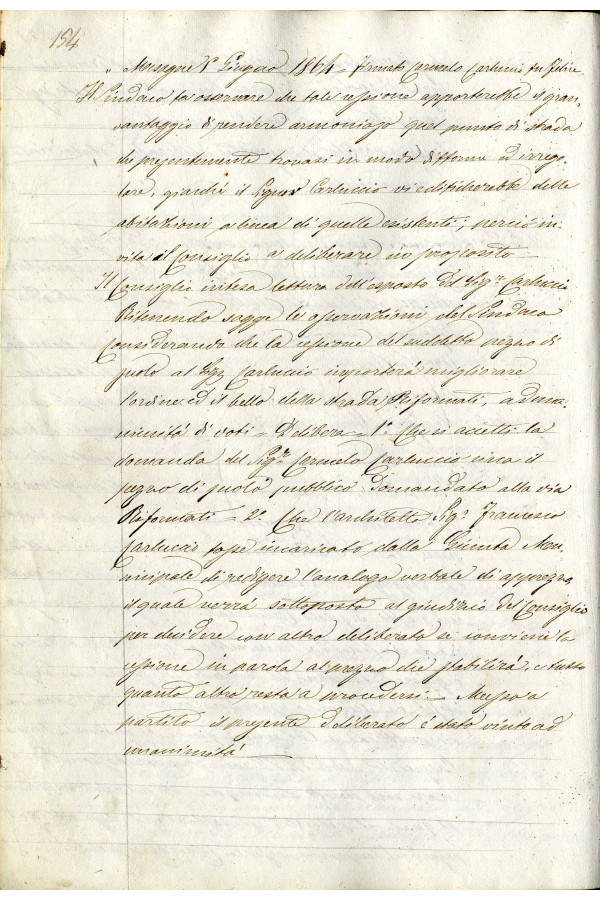 154
" Mesagne 1° Giugno 1864 = Firmato Carmelo Carluccio fu Felice
Il Sindaco fa osservare che tale cessione apporterebbe il gran
vantaggio di rendere armonioso quel punto di strada
che presentemente trovasi in modo difforme ed irrego-
lare, giacchè il Signor Carluccio vi edificherebbe delle
abitazioni a linea di quelle esistenti; perciò in-
vita il Consiglio a deliberare in proposito —
Il Consiglio intesa lettura dell'esposto del Sigr Carluccio
Ritenendo sagge le osservazioni del Sindaco
Considerando che la cessione del suddetto pezzo di
suolo al Sigr Carluccio importerà migliorare
l'ordine ed il bello della strada Riformati, ad una-
nimità di voti = Delibera = 1° Che si accetti la
domanda del Sigr Carmelo Carluccio circa il
pezzo di suolo pubblico domandato alla via
Riformati = 2° Che l'architetto Sigr Francesco
Carluccio fosse incaricato dalla Giunta Mu-
nicipale di redigere l'analogo verbale di apprezzo
il quale verrà sottoposto al giudizio del Consiglio
per decidere con altro deliberato se conviene la
cessione in parola al prezzo che stabilirà, e tutto
quanto altro resta a procedersi — Messo a
partito il presente deliberato è stato vinto ad
unanimità —